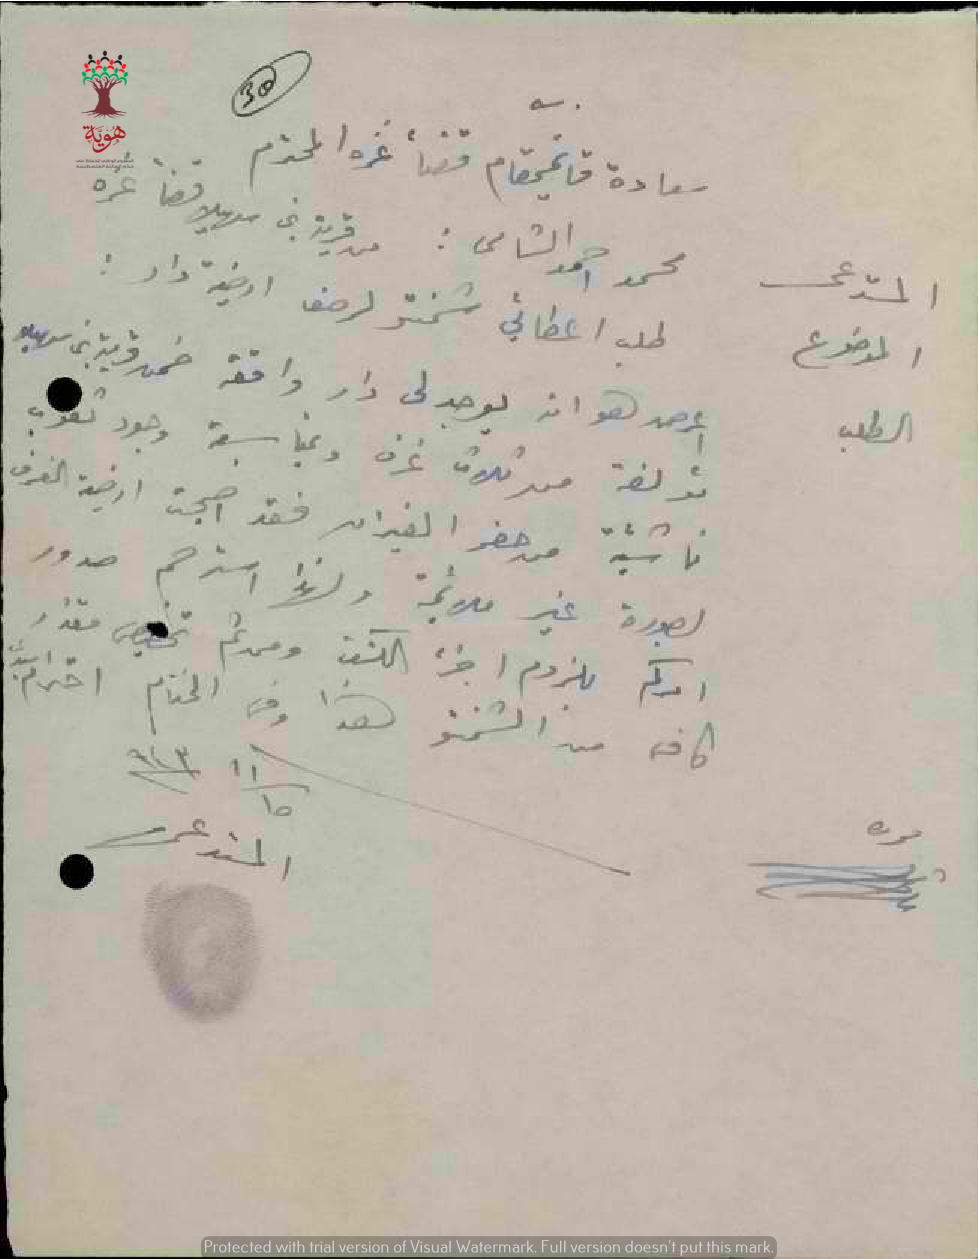 30
سعادة قائمقام قضاء غزه المحترم
المستدعي محمد احمد الشامي : من قرية بني سهيلا قضاء غزه
الموضوع طلب اعطائي شمنتو لرصف ارضية دار :
الطلب اعرض هو انه يوجد لي دار واقعة ضمن قرية بني سهيلا
مؤلفة من ثلاث غرف وبمناسبة وجود ثقوب
ناشئة من حفر الفيران فقد اصبحت ارضية الغرف
بصورة غير ملائمة ولهذا استرحم صدور
امركم بلزوم اجراء الكشف ومن ثم تخصيص مقدار
كاف من الشمنتو هذا وفي الختام احترامي
١٥/١١
المستدعي
هوية
Protected with trial version of Visual Watermark. Full version doesn't put this mark.